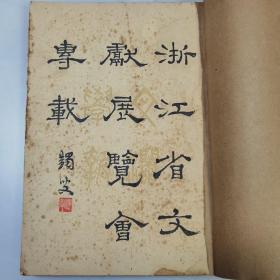 浙江省文
獻展覽會
專載
蠲叟